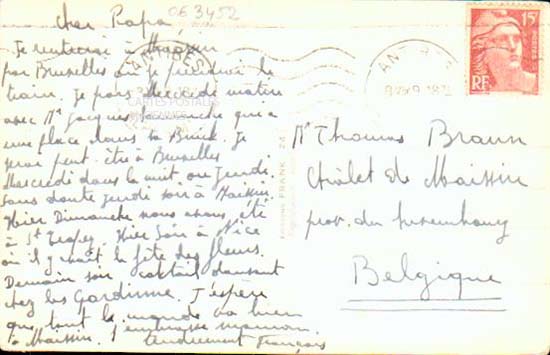 063452
Cher Papa
Je rentrerai à Maissin
par Bruxelles où je prendrai le
train. Je pars Mercredi matin
avec Mr Jacques qui a
une place dans sa Buick. Je
serai peut-être à Bruxelles
Mercredi dans la nuit ou Jeudi.
sans doute jeudi soir à Maissin.
Hier Dimanche nous avons été
à St Tropez. Hier Soir à Nice
où il y avait la fête des fleurs.
Demain soir cocktail dansant
chez les Gardinne. J'espère
que tout le monde va bien
à Maissin. J'embrasse maman.
Tendrement François
ANTIBES
CARTES POSTALES
FRANK
15F
RF
Mr Thomas Braun
Châlet de Maissin
prov. du Luxembourg
Belgique